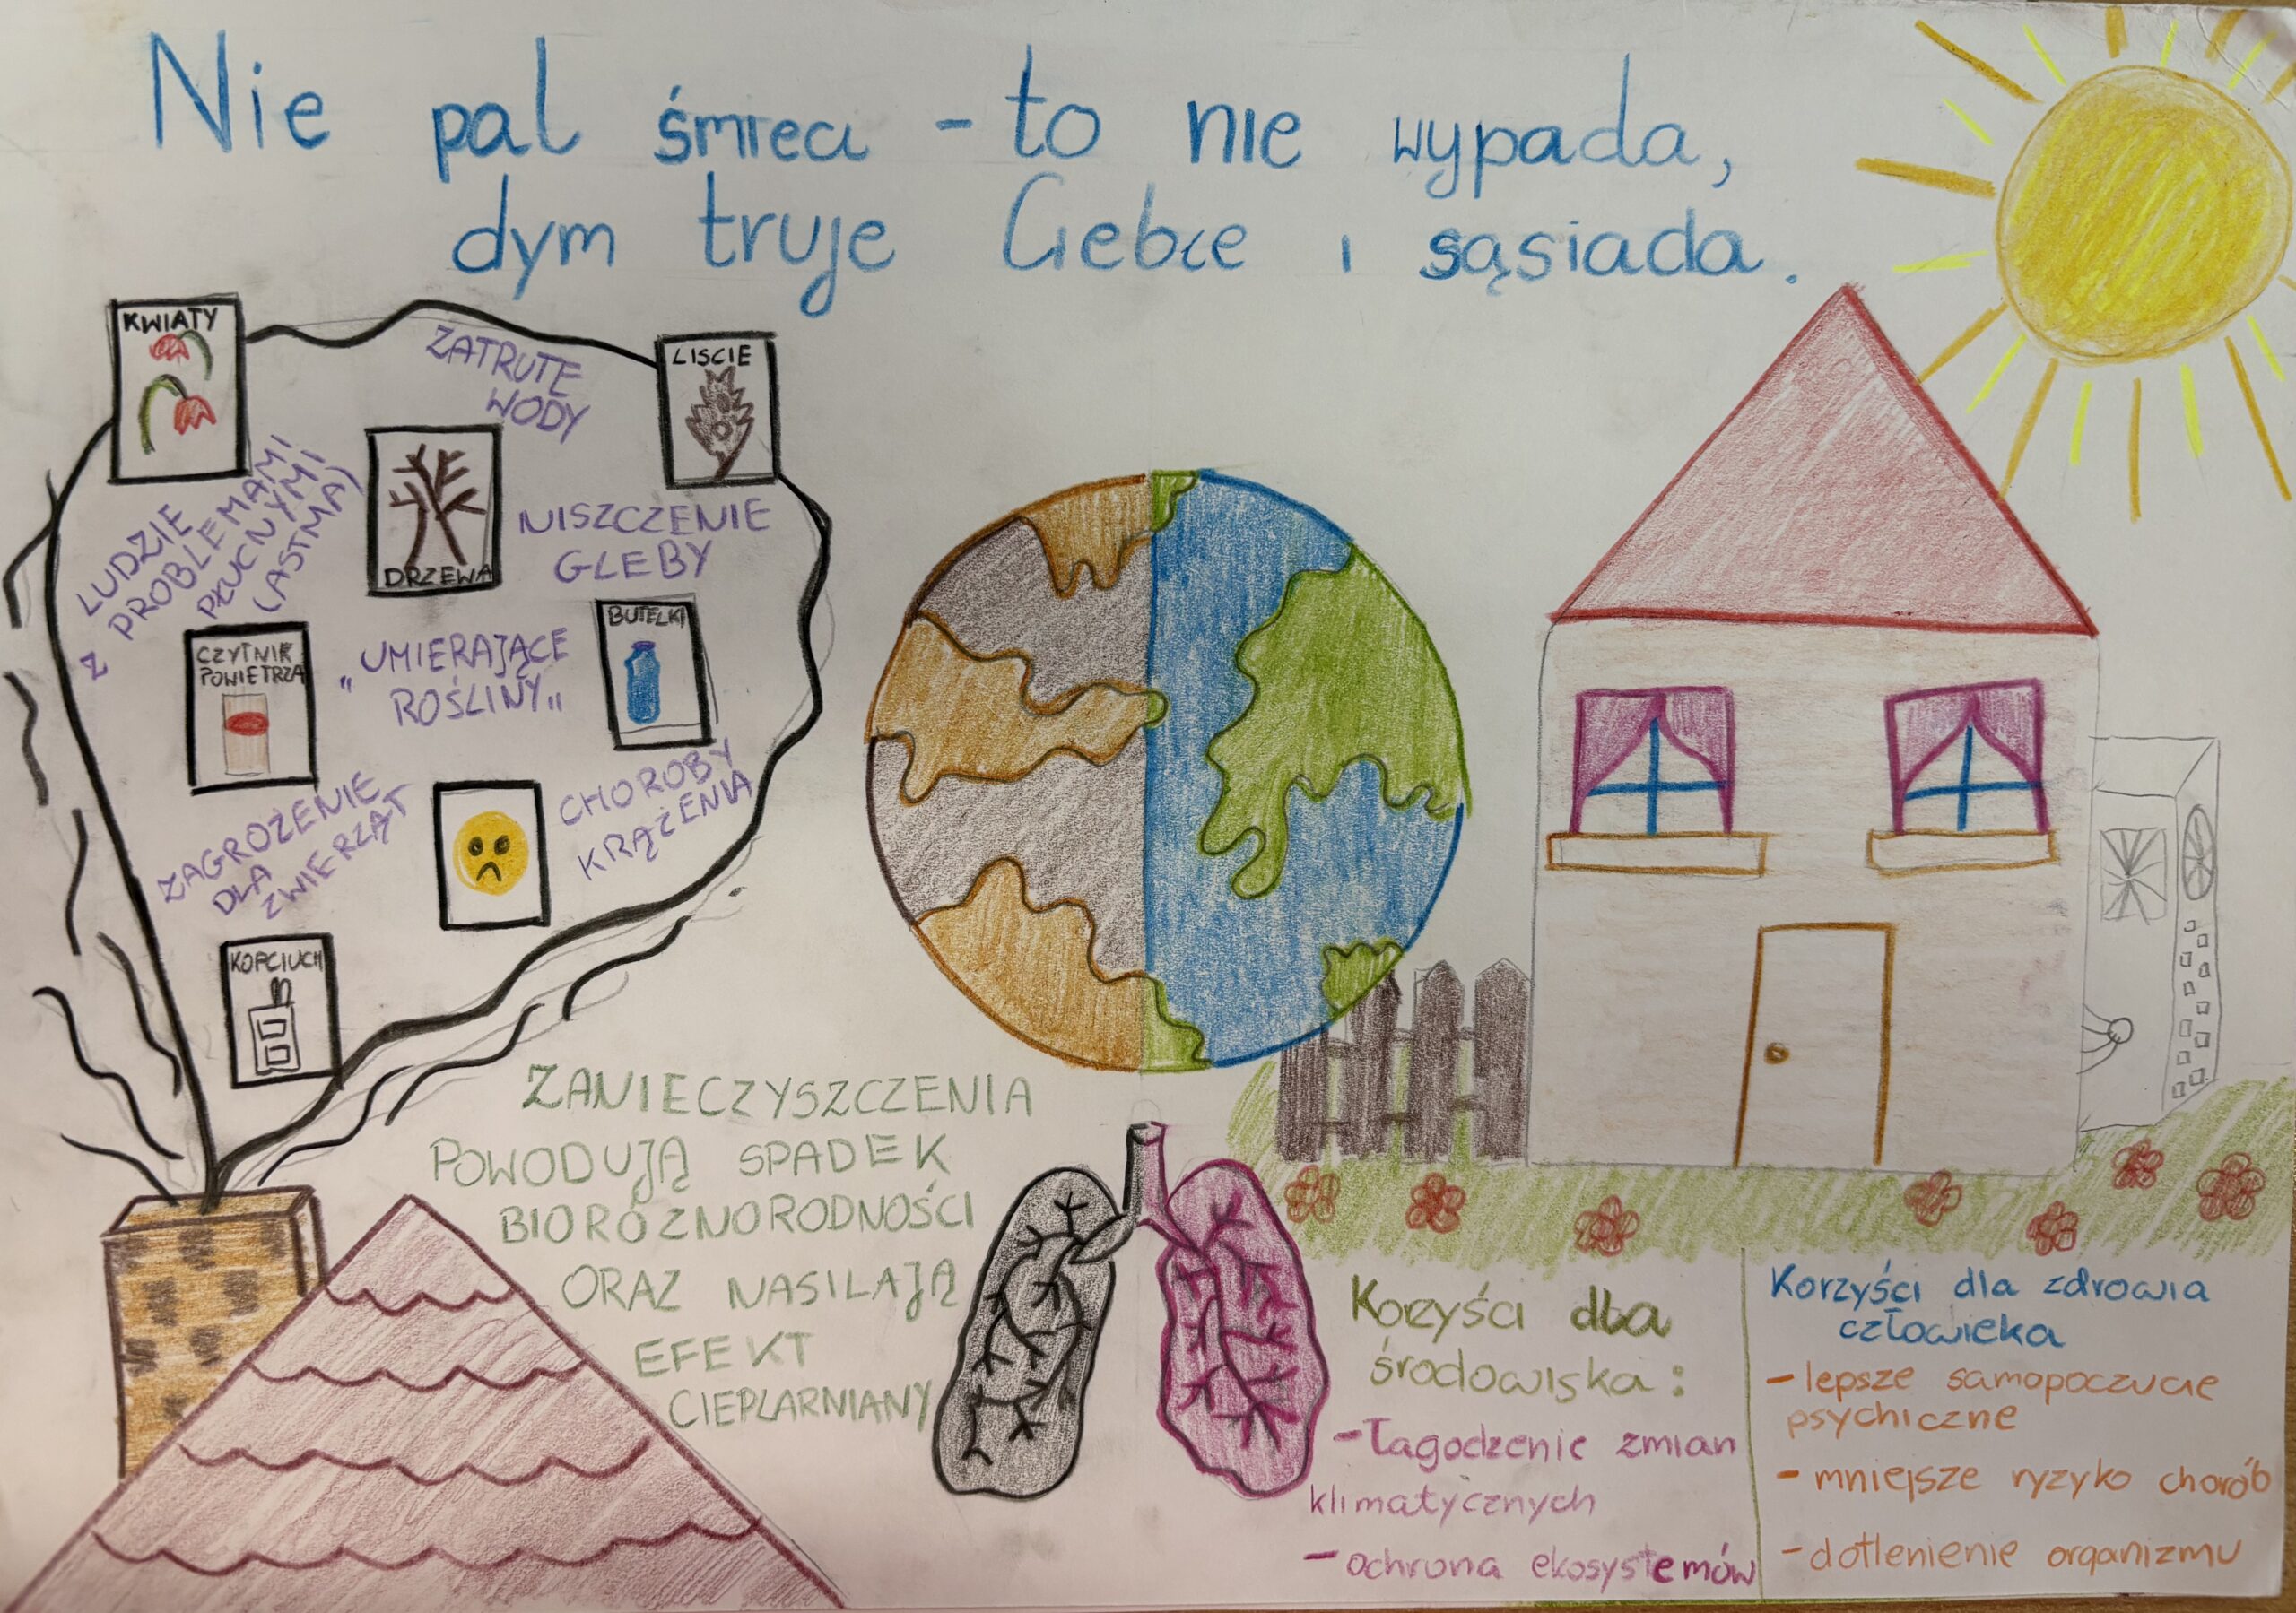 Nie pal śmieci - to nie wypada,
dym truje Ciebie i sąsiada.
KWIATY
ZATRUTE
WODY
LISCIE
LUDZIE
Z PROBLEMAMI
PŁUCNYMI
(ASTMA)
DRZEWA
NISZCZENIE
GLEBY
CZYTNIK
POWIETRZA
"UMIERAJĄCE
ROŚLINY"
BUTELKI
ZAGROŻENIE
DLA
ZWIERZĄT
CHOROBY
KRĄŻENIA
KOPCIUCH
ZANIECZYSZCZENIA
POWODUJĄ SPADEK
BIORÓŻNORODNOŚCI
ORAZ NASILAJĄ
EFEKT
CIEPLARNIANY
Korzyści dla
środowiska:
-łagodzenie zmian
klimatycznych
-ochrona ekosystemów
Korzyści dla zdrowia
człowieka
-lepsze samopoczucie
psychiczne
-mniejsze ryzyko chorób
-dotlenienie organizmu